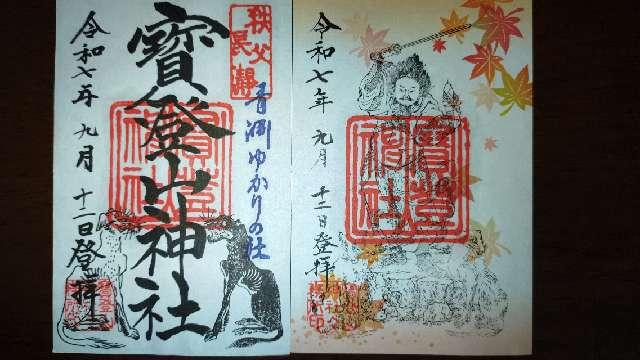 秩父
長瀞
青淵ゆかりの社
寳登山神社
令和七年九月十二日登拝
寳登山神社
令和七年九月十二日登拝
寳登山神社